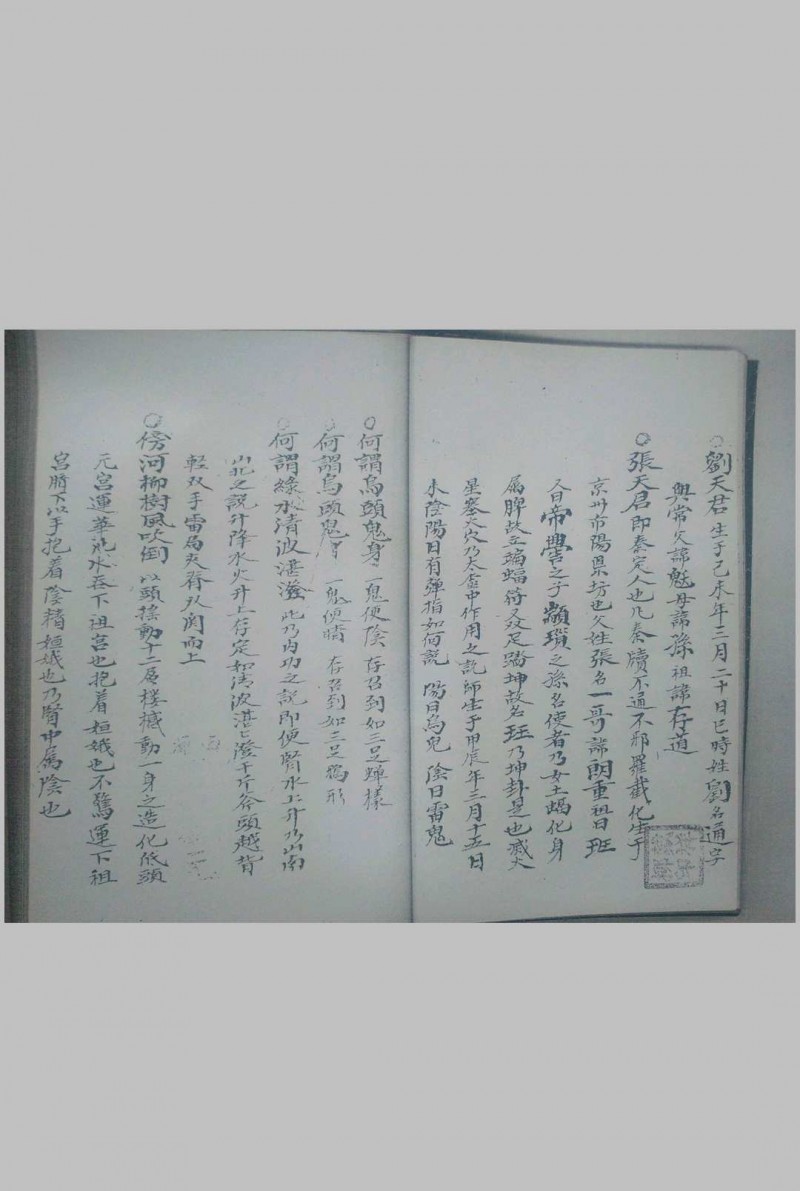 ○劉天君生于己未年三月二十日巳時姓劉名通字
與常父諱魃母諱孫祖諱存道
○張天君即秦定人也凡秦牘不通不邪羅截化生于
京卅市陽県坊也父姓張名一哥諱朗重祖日班
日帝嚳之子顓瑣之孫名使者乃女土蝠化身
属脾故立蝙蝠符又足踏坤故名玨乃坤卦是也滅火
星塞火穴乃太虚中作用之説師生于甲辰年三月十五日
未陰陽日有彈指如何説 陽日烏鬼 陰日雷鬼
○何謂烏頭鬼身 一鬼便陰 存召到如三足蟬樣
○何謂烏頭鬼 一鬼便晴 存召到如三足鴉形
○何謂綠水清波湛澄 此乃内功之説即便腎水上升乃山南
山北之説升降水火升上存定如清波湛〻澄千斤斧頭越背
輕双手雷局夾脊双関而上
○傍河柳樹風吹倒 以頭搖動十二层楼撼動一身之造化低頭
元宮運華池水吞下祖宮也抱着姮娥也不驚運下祖
宮臍下以手抱着陰精姮娥也乃腎中属陰也